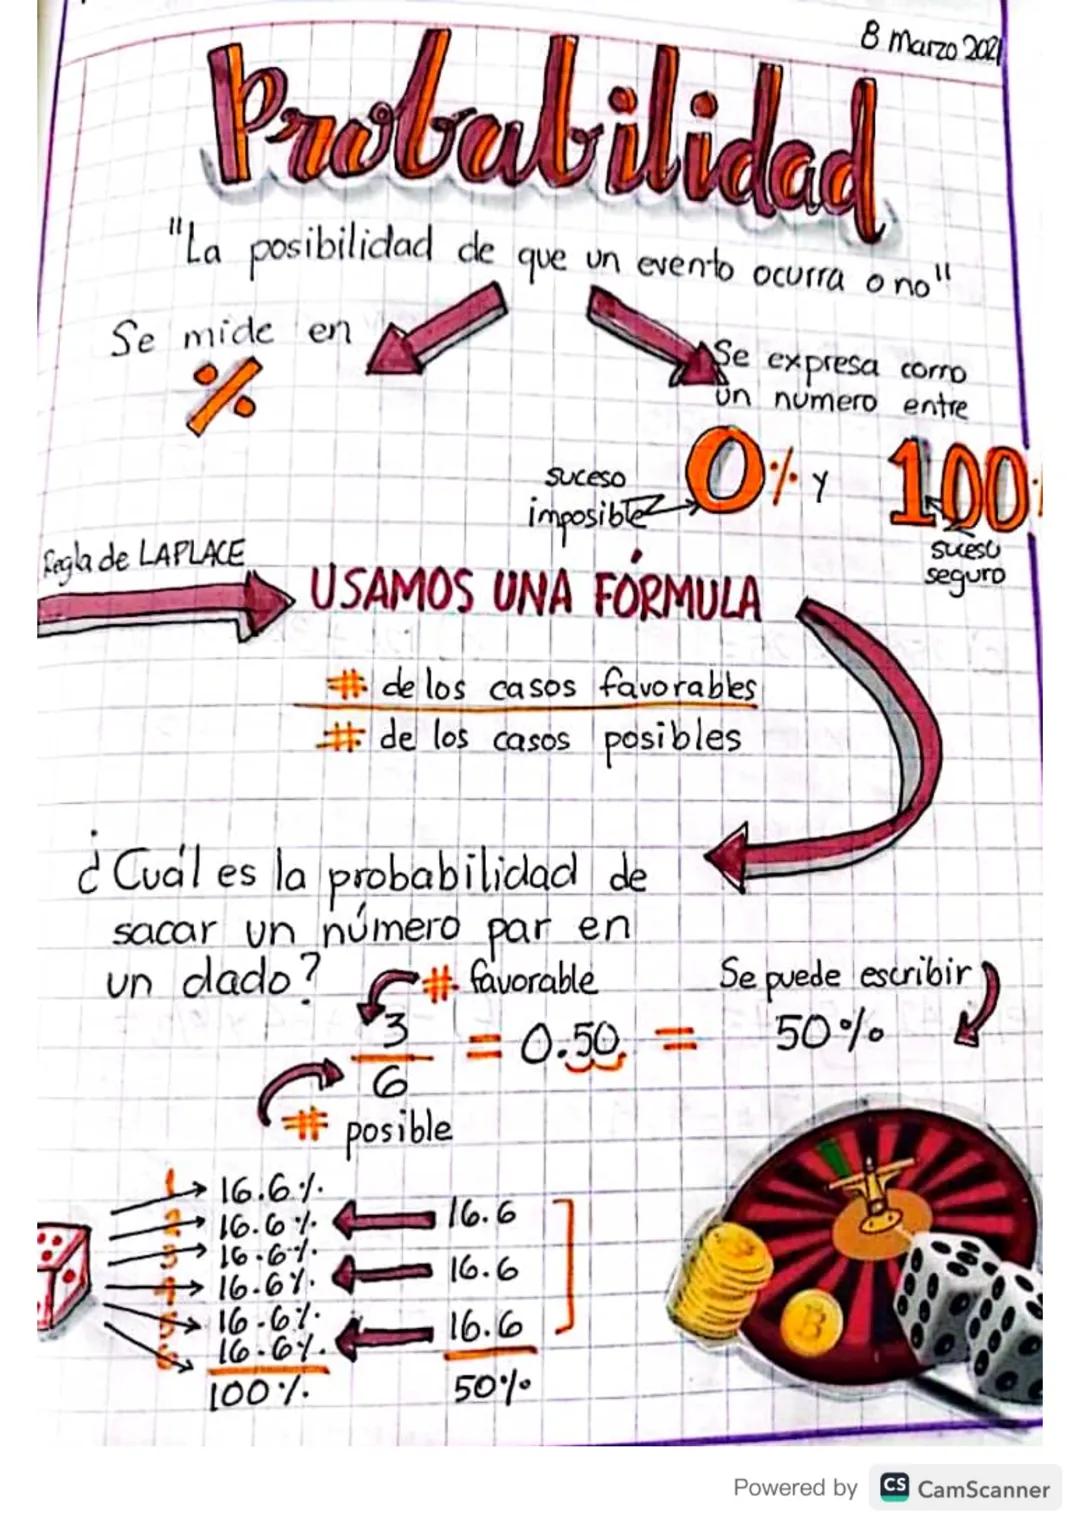 8 Marzo 2021
Probabilidad
"La posibilidad de que un evento ocurra o no"
Se mide en
%
Se expresa como
un numero entre
0% y 100%
suceso
imposible
suceso
seguro
Regla de LAPLACE
USAMOS UNA FÓRMULA
# de los casos favorables
# de los casos posibles
¿Cuál es la probabilidad de
sacar un número par en
un dado?
# favorable
Se puede escribir
3
6
= 0.50 = 50%
# posible
1 16.6%
2 16.6% 16.6
3 16.6%
4 16.6% 16.6
5 16.6%
6 16.6% 16.6
100% 50%
B
Powered by CS CamScanner